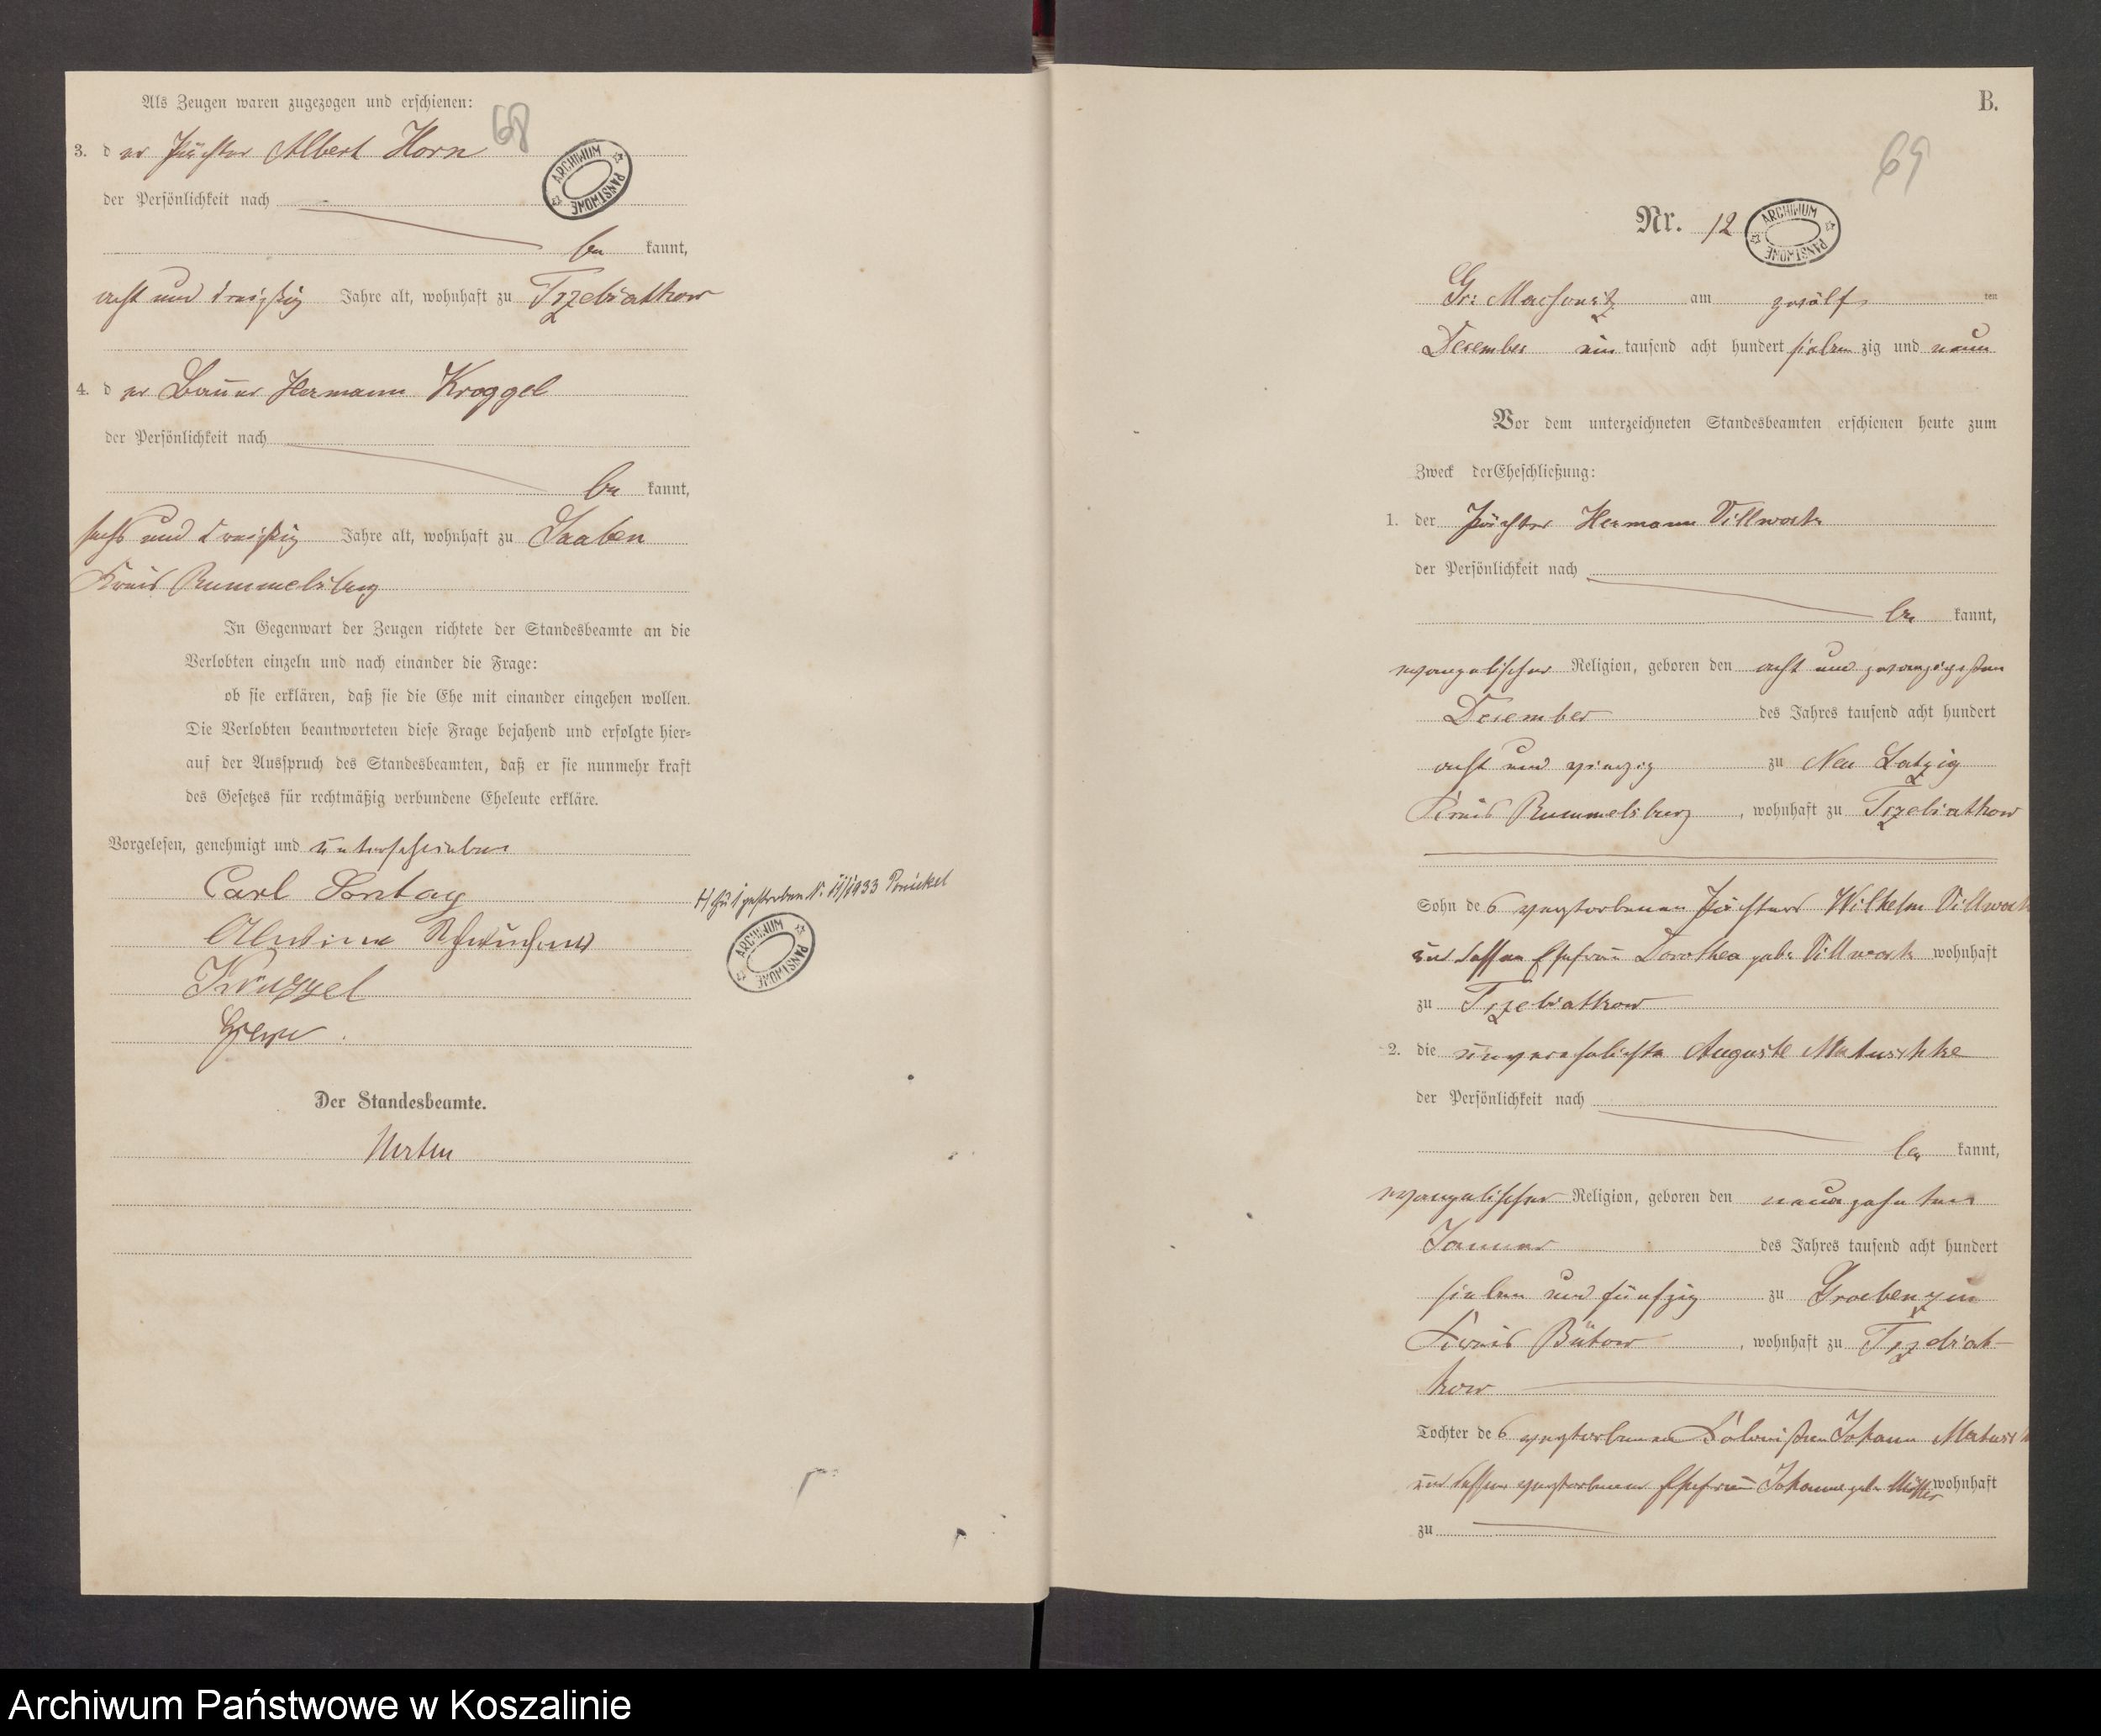 Als Zeugen waren zugezogen und erschienen:
68
3. der Pächter Albert Horn
ARCHIWUM PAŃSTWOWE
der Persönlichkeit nach
be kannt,
acht und dreißig Jahre alt, wohnhaft zu Trzebiatkow
4. der Bauer Hermann Kroggel
der Persönlichkeit nach
be kannt,
sechs und dreißig Jahre alt, wohnhaft zu Saaben
Kreis Rummelsburg
In Gegenwart der Zeugen richtete der Standesbeamte an die
Verlobten einzeln und nach einander die Frage:
ob sie erklären, daß sie die Ehe mit einander eingehen wollen.
Die Verlobten beantworteten diese Frage bejahend und erfolgte hier-
auf der Ausspruch des Standesbeamten, daß er sie nunmehr kraft
des Gesetzes für rechtmäßig verbundene Eheleute erkläre.
Vorgelesen, genehmigt und unterschrieben
Carl Sontag
H) zu 1 gestorben N. 11/1933
ARCHIWUM PAŃSTWOWE
Der Standesbeamte.
B.
69
Nr. 12
ARCHIWUM PAŃSTWOWE
Gr: Massowitz am zwölf ten
December ein tausend acht hundert sieben zig und neun
Vor dem unterzeichneten Standesbeamten erschienen heute zum
Zweck der Eheschließung:
1. der Pächter Hermann Villwock
der Persönlichkeit nach
be kannt,
evangelischer Religion, geboren den acht und zwanzigsten
December des Jahres tausend acht hundert
acht und vierzig zu Neu Latzig
Kreis Rummelsburg, wohnhaft zu Trzebiatkow
Sohn des verstorbenen Pächters Wilhelm Villwock
und dessen Ehefrau Dorothea geb: Villwock wohnhaft
zu Trzebiatkow
2. die unverehelichte Auguste Matuschke
der Persönlichkeit nach
be kannt,
evangelischer Religion, geboren den neunzehnten
Januar des Jahres tausend acht hundert
sieben und fünfzig zu Groebenzin
Kreis Bütow, wohnhaft zu Trzebiat-
kow
Tochter des verstorbenen Kolonisten Johann
und dessen verstorbenen Ehefrau Johanne geb. wohnhaft
zu
Archiwum Państwowe w Koszalinie